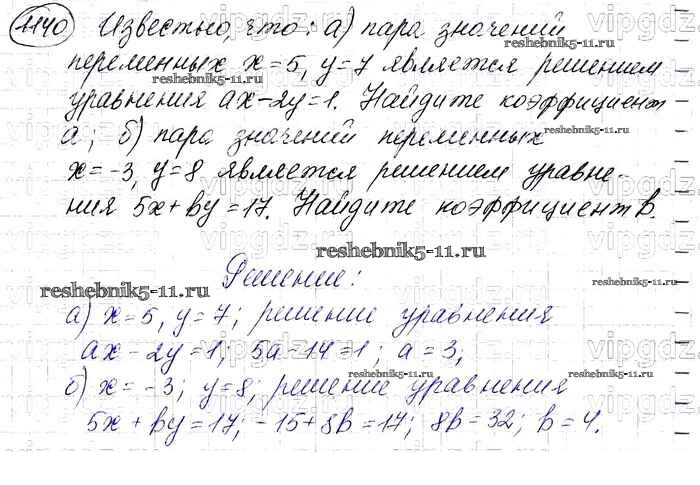 1140 Известно, что: а) пара значений
переменных x=5, y=7 является решением
reshebnik5-11.ru
reshebnik5-11.ru
уравнения ax-2y=1. Найдите коэффициент
а; б) пара значений переменных
reshebnik5-11.ru
x=-3, y=8 является решением уравне-
ния 5x+by=17. Найдите коэффициент b.
reshebnik5-11.ru
reshebnik5-11.ru
Решение:
reshebnik5-11.ru
а) x=5, y=7; решение уравнения
ax-2y=1; 5a-14=1; a=3;
reshebnik5-11.ru
reshebnik5-11.ru
б) x=-3; y=8; решение уравнения
5x+by=17; -15+8b=17; 8b=32; b=4.